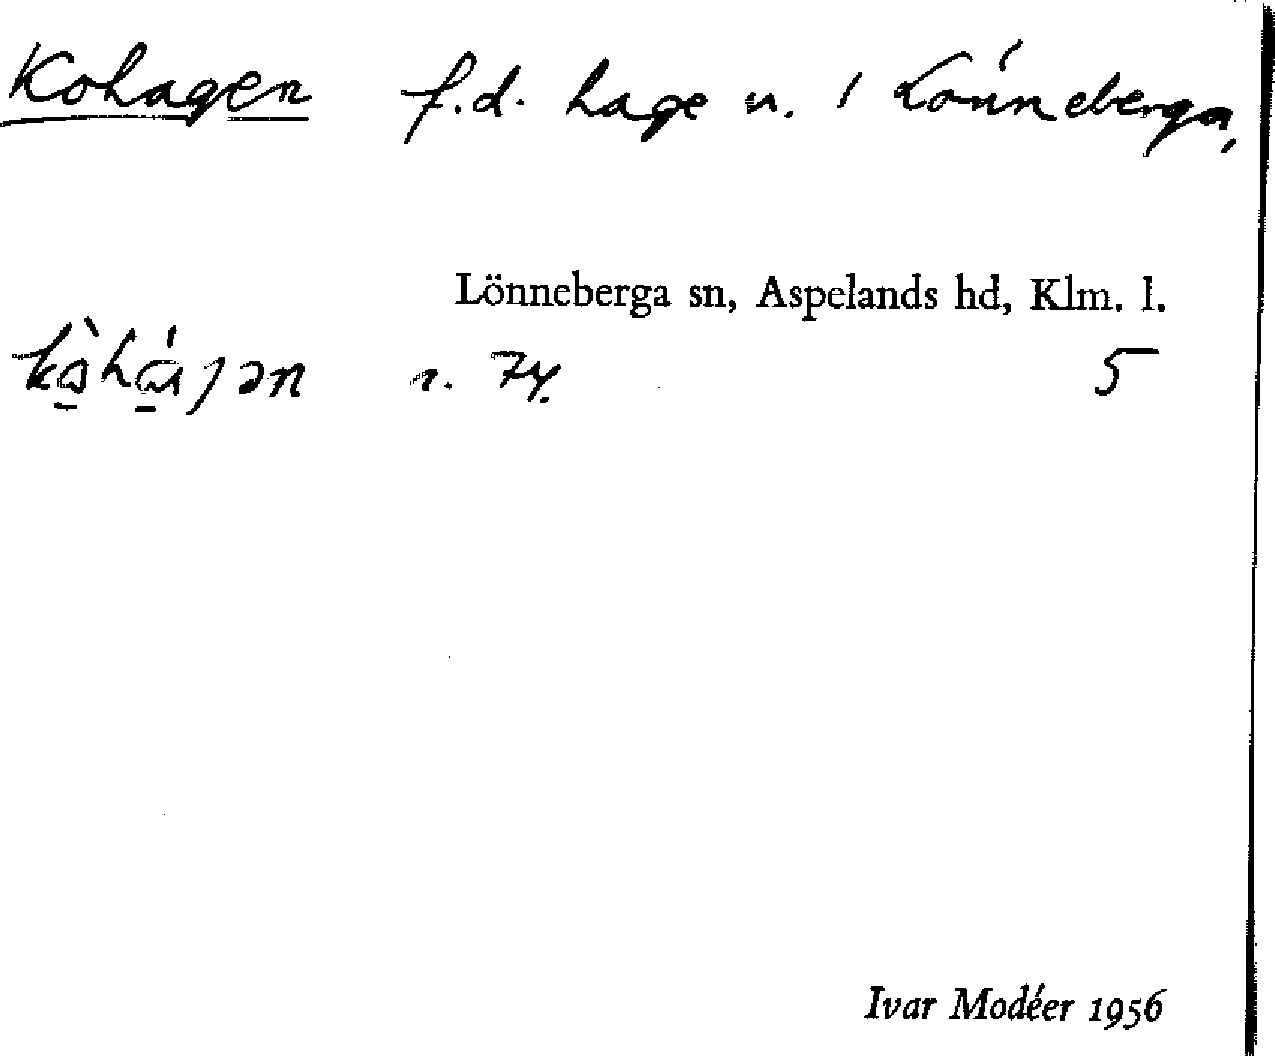 Kohagen f.d. hage u. / Lönneberga,
Lönneberga sn, Aspelands hd, Klm. l.
r. 74. 5
Ivar Modéer 1956